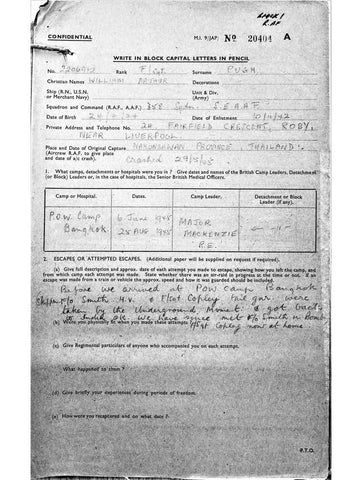 CONFIDENTIAL
M.I. 9/JAP/ No 20404 A
WRITE IN BLOCK CAPITAL LETTERS IN PENCIL
No. Rank F/Sgt. Surname PUGH
Christian Names WILLIAM ARTHUR Decorations
Ship (R.N., U.S.N. or Merchant Navy) Unit & Div. (Army)
Squadron and Command (R.A.F., A.A.F.) 358 Sqdn S.E.A.A.F
Date of Birth Date of Enlistment 10/4/42
Private Address and Telephone No. 24 FAIRFIELD CRESCENT, ROBY, NEAR LIVERPOOL
Place and Date of Original Capture. NAKORNSAWAN PROVINCE THAILAND.
(Aircrew R.A.F. to give place and date of a/c crash). Crashed 29/5/45
1. What camps, detachments or hospitals were you in? Give dates and names of the British Camp Leaders, Detachment (or Block) Leaders or, in this case, the Senior British Medical Officers.
Camp or Hospital. Dates. Camp Leader. Detachment or Block Leader (if any).
P.O.W. Camp Bangkok 6 June 1945 28 AUG 1945 MAJOR MACKENZIE R.E.
2. ESCAPES OR ATTEMPTED ESCAPES. (Additional paper will be supplied on request if required).
(a) Give full description and approx. date of each attempt you made to escape, showing how you left the camp, and from which camp each attempt was made. State whether there was an air-raid in progress at the time or not. If an escape was made from a train or vehicle the approx. speed and how it was guarded should be included.
Before we arrived at POW Camp Bangkok
F/O Smith H.V. & F/Sgt Copley tail gnr were
taken by the Underground Mvmt & got back
to India etc. We have since met F/O Smith
(b) Were you physically fit when you made these attempts? F/Sgt Copley now at home
(c) Give Regimental particulars of anyone who accompanied you on each attempt.
What happened to them?
(d) Give briefly your experiences during periods of freedom.
(e) How were you recaptured and on what date?
P.T.O.